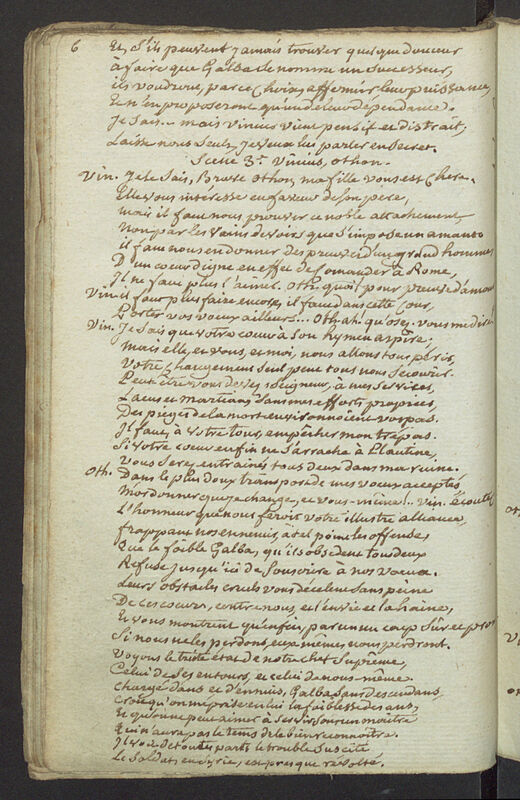 6 Et, s'ils peuvent jamais trouver quelque douceur
à faire que Galba se nomme un successeur,
ils voudront, par ce choix, affermir leur puissance,
Et n'en proposeront qu'en leur dependance.
Je sais... mais vinius vient pensif et distrait,
Laisse nous seuls, je veux lui parler en secret.
Scene 3e. Vinius, othon.
Vin. Je le sais, Brave othon, ma fille vous est chere.
Elle vous intéresse en faveur de son père,
mais il faut nous prouver ce noble attachement,
non par les vains devoirs que s'impose un amant
il faut nous en donner des preuves d'un grand homme
D'un coeur digne en effet de commander à Rome,
Il ne faut plus l'aimer. Oth. quoi! pour preuve d'amour
Vin. il faut plus faire encore, il faut dans cette Cour,
Porter vos voeux ailleurs.... Oth. ah! qu'osez-vous me dire!
Vin. Je sais que votre coeur à son hymen aspire;
Mais elle, et vous, et moi, nous allons tous périr,
Votre changement seul peut tous nous secourir.
Peut-être vous devez, seigneur, à mes services,
Lacus et martinus sans mes efforts propices,
Des pièges de la mort environnoient vos pas.
Il faut, à votre tour, empêcher mon trépas.
Si votre coeur enfin ne s'arrache à Plautine,
Vous serez entraînés tous deux dans ma ruine.
Oth. Dans le plus doux transport de mes voeux acceptés
m'ordonner que je change, et vous-même!.. Vin. écoutez
L'honneur que nous feroit votre illustre alliance,
frappant nos ennemis, à tel point les offense,
Que le foible Galba, qu'ils obsedent tous deux
Refuse jusqu'ici de souscrire à nos voeux.
Leurs obstacles cruels vous décelent sans peine
De ces coeurs, contre nous, et l'envie et la haine,
Et vous montrent qu'enfin, par un coup sûr et prompt
Si nous ne les perdons, eux mêmes nous perdront.
Voyons le triste état de notre chef suprême,
Celui de ses entours, et celui de nous-même.
Chargé d'ans et d'ennuis, Galba sans descendans,
Croit qu'on méprise en lui la foiblesse des ans,
Et qu'on ne peut aimer à servir sous un maître
Qui n'aura pas le tems de le bien reconnoître.
Il voit de toutes parts le trouble suscité
Le Soldat, en syrie, est presque révolté.